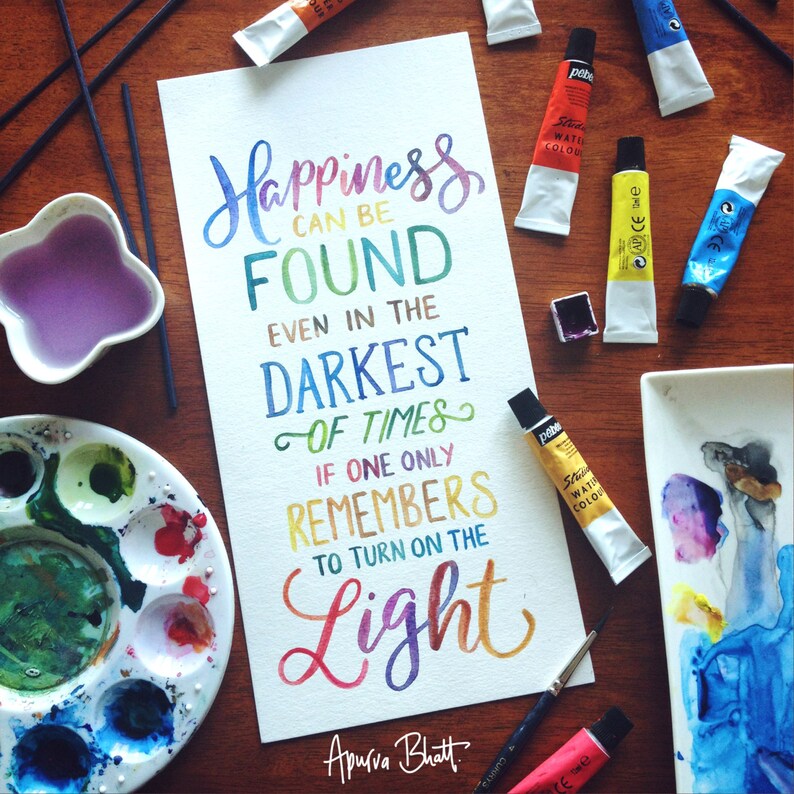 Happiness
CAN BE
FOUND
EVEN IN THE
DARKEST
OF TIMES
IF ONE ONLY
REMEMBERS
TO TURN ON THE
Light
Apurva Bhatt.
pebeo
Studio
WATER
COLOUR
12ml e
CE
AP
pebeo
Studio
WATER
COLOUR
4 CURRYS